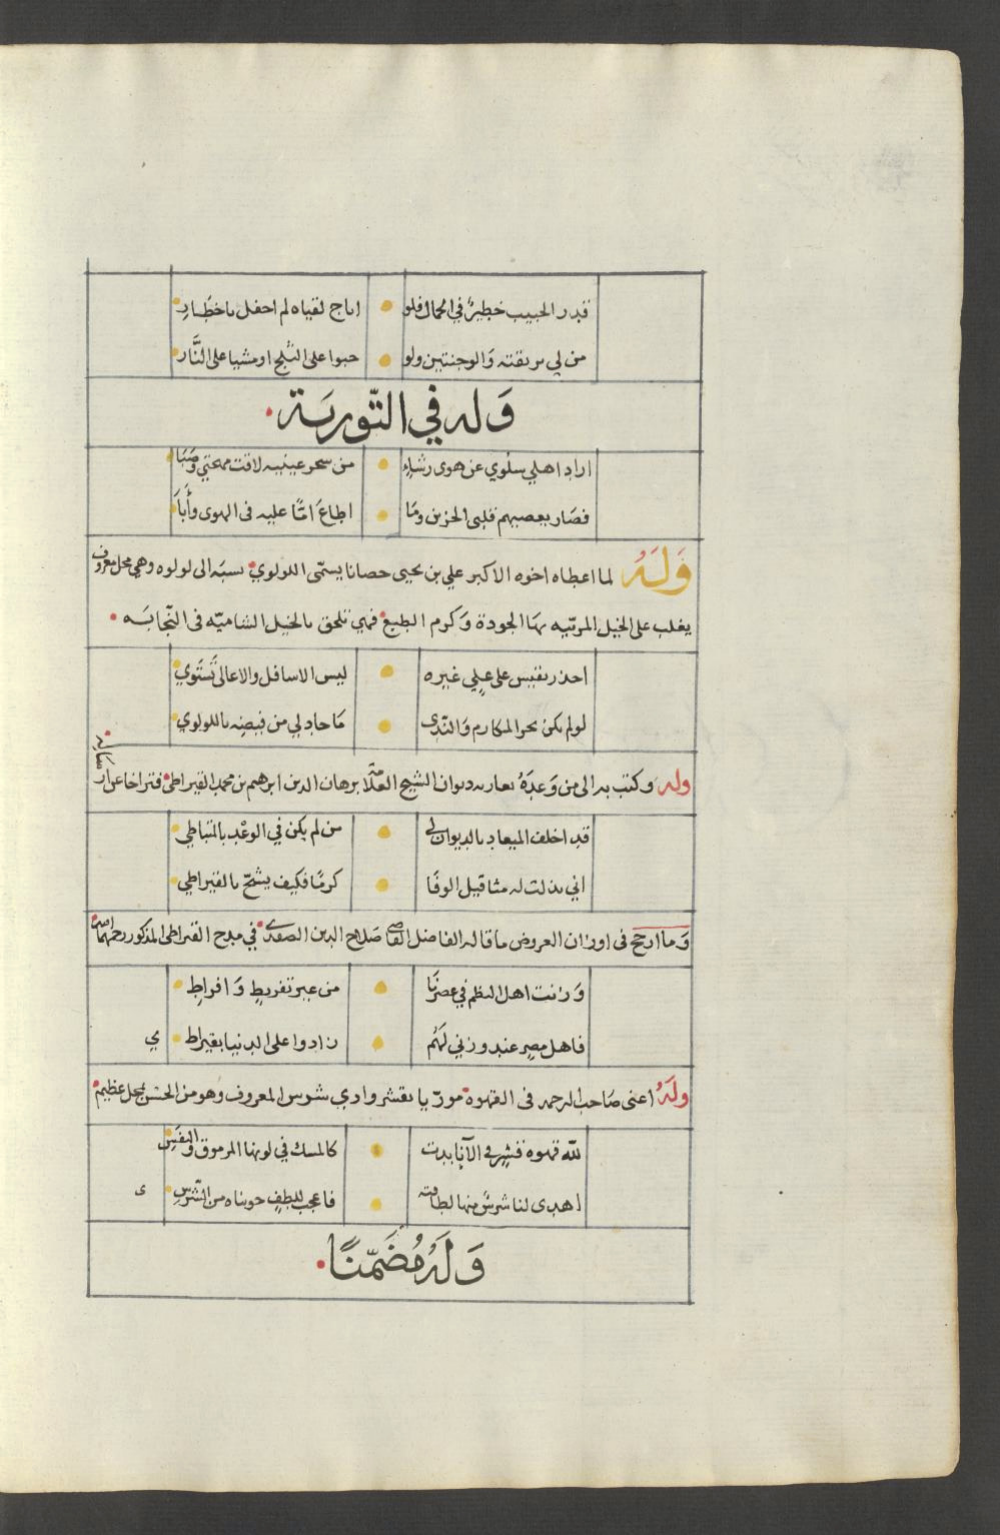 قدر الحبيب خطير في الجمال فلو • اباح لقياه لم احفل باخطار
من لي بريقته والوجنتين ولو • حبوا على الثلج او مشيا على النَّار
وَله في التّوريَة
اراد اهلي سلوي عن هوى رشاء • من سحر عينيه لاقت مهجتي وصَبَا
فصَار يعصيهم قلبى الحزين ومَا • اطاعَ امّا عليه فى الهوى وأَبَا
وَلَهُ لما اعطاه اخوه الاكبر علي بن يحيى حصانا يسمّى اللولوي نسبَه الى لولوه وهي محل معروف
يغلب على الخيل المربّيه بهَا الجودة وَكرم الطبع فهي تلحق بالخيل الشاميّه فى النّجابَه
احذر تقيس على علي غيره • ليس الاسافل والاعالى تَستَوي
لو لم يكن بحر المكارم والنّدى • مَا جاد لي من فيضه باللولوي
وله وكتب به الى من وَعدَهُ بعارية ديوان الشيخ العلّامة برهان الدين ابرهيم بن محمد القيراطى فتراخا عن ارساله
قد اخلف الميعاد بالديوان لي • من لم يكن في الوعْد بالمتباطي
اني بذلت له مثاقيل الوفَا • كرمًا فكيف يشحّ بالقيراطي
وَما ارجح فى اوزان العروض ما قاله الفاضل القاضي صَلاح الدين الصفدى في مدح القيراطى المذكور رحمهما الله
وَزنت اهل النظم في عصرنَا • من غير تفريطٍ وَافراطِ
فاهل مصر عند وزني لَهُم • زادوا على الدنيا بقيراط ي
ولَهُ اعنى صَاحب الترجمه فى القهوة مورّيا بقشر وادي شوس المعروف وَهو من الحسْن بمحل عظيم
للّه قهوة قشرٍ في الآنا بدت • كالمسك في لونها المرموق والنفَسِ
اهدى لنا شوسُ منها لطافته • فاعجب للطفٍ حويناه من الشّرسِ ى
وَلَهُ مُضَمّنًا